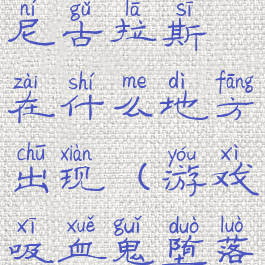 ní gǔ lā sī
尼古拉斯
zài shí me dì fāng
在什么地方
chū xiàn yóu xì
出现（游戏
xī xuě guǐ duò luò
吸血鬼堕落